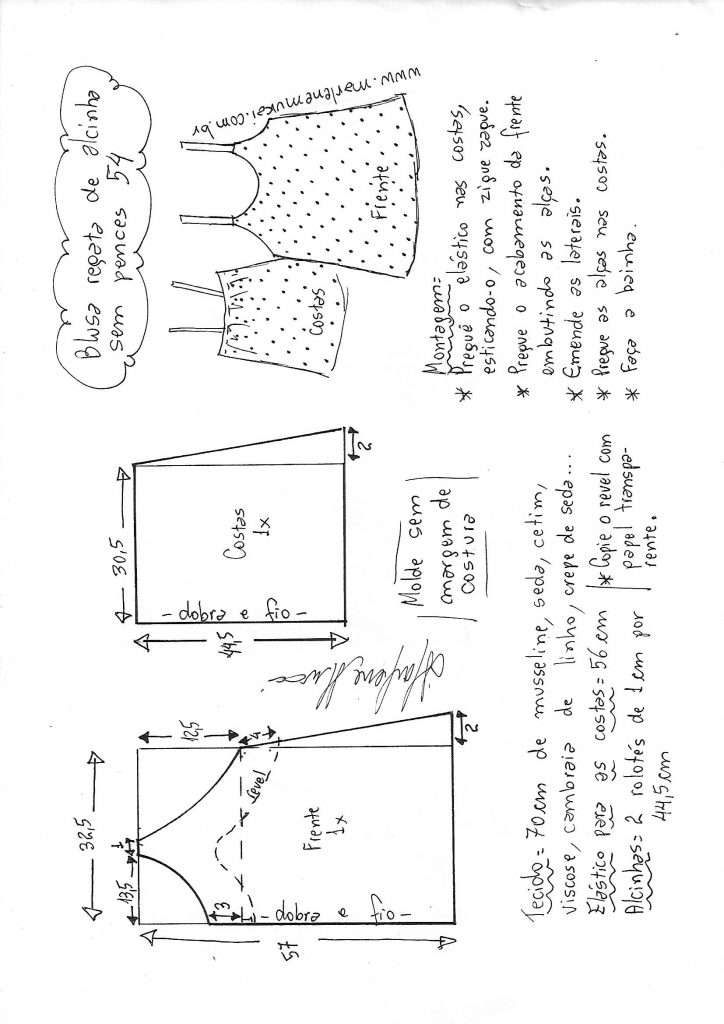 Blusa regata de alcinha
sem pences 54
www.marlenemukai.com.br
Costas
Frente
32,5
13,5
1
12,5
3
4
revel
57
- dobra e fio -
Frente
1x
2
30,5
44,5
- dobra e fio -
Costas
1x
2
Molde sem
margem de
costura
Montagem=
* Pregue o elástico nas costas,
esticando-o, com zigue zague.
* Pregue o acabamento da frente
embutindo as alças.
* Emende as laterais.
* Pregue as alças nas costas.
* Faça a bainha.
Tecido= 70cm de musseline, seda, cetim,
viscose, cambraia de linho, crepe de seda...
Elástico para as costas= 56cm
Alcinhas= 2 rolotés de 1cm por
44,5cm
* Copie o revel com
papel transpa-
rente.